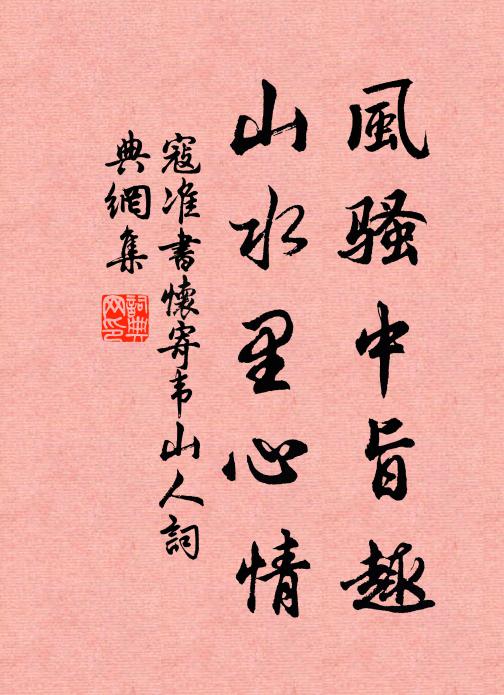 風騷中旨趣
山水里心情
寇准書懷寄韦山人詞
典網集
詞典网印